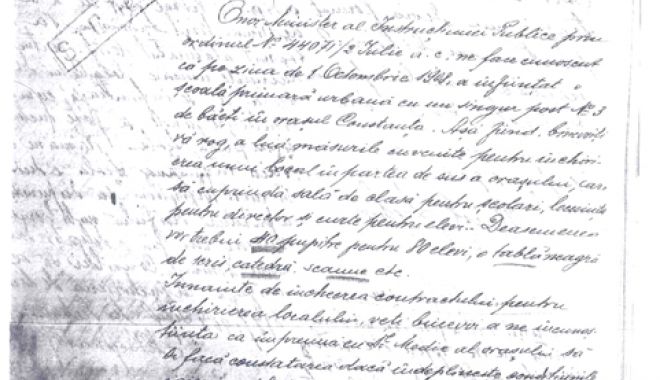 Onor. Minister al Instrucțiunei Publice prin
ordinul No 44071/2 Iulie a. c., ne face cunoscut
ca pe ziua de 1 Octombrie a înființat o
școală primară urbană cu un singur post No 3
de băeți în orașul Constanța. Așa fiind, binevoiți
vă rog, a lua măsurile cuvenite pentru închiri-
erea unui local în partea de sus a orașului, care
să cuprindă sală de clasă pentru școlari, locuința
pentru director și curte pentru elevi.. Deasemenea
va trebui 40 pupitre pentru 80 elevi, o tablă neagră
de scris, catedră, scaune etc.
Înnainte de încheerea contractului pentru
închirierea localului, veți binevoi a ne încunoș-
tința ca împreună cu Dl. Medic al orașului să
facă constatarea dacă îndeplinește condițiunile